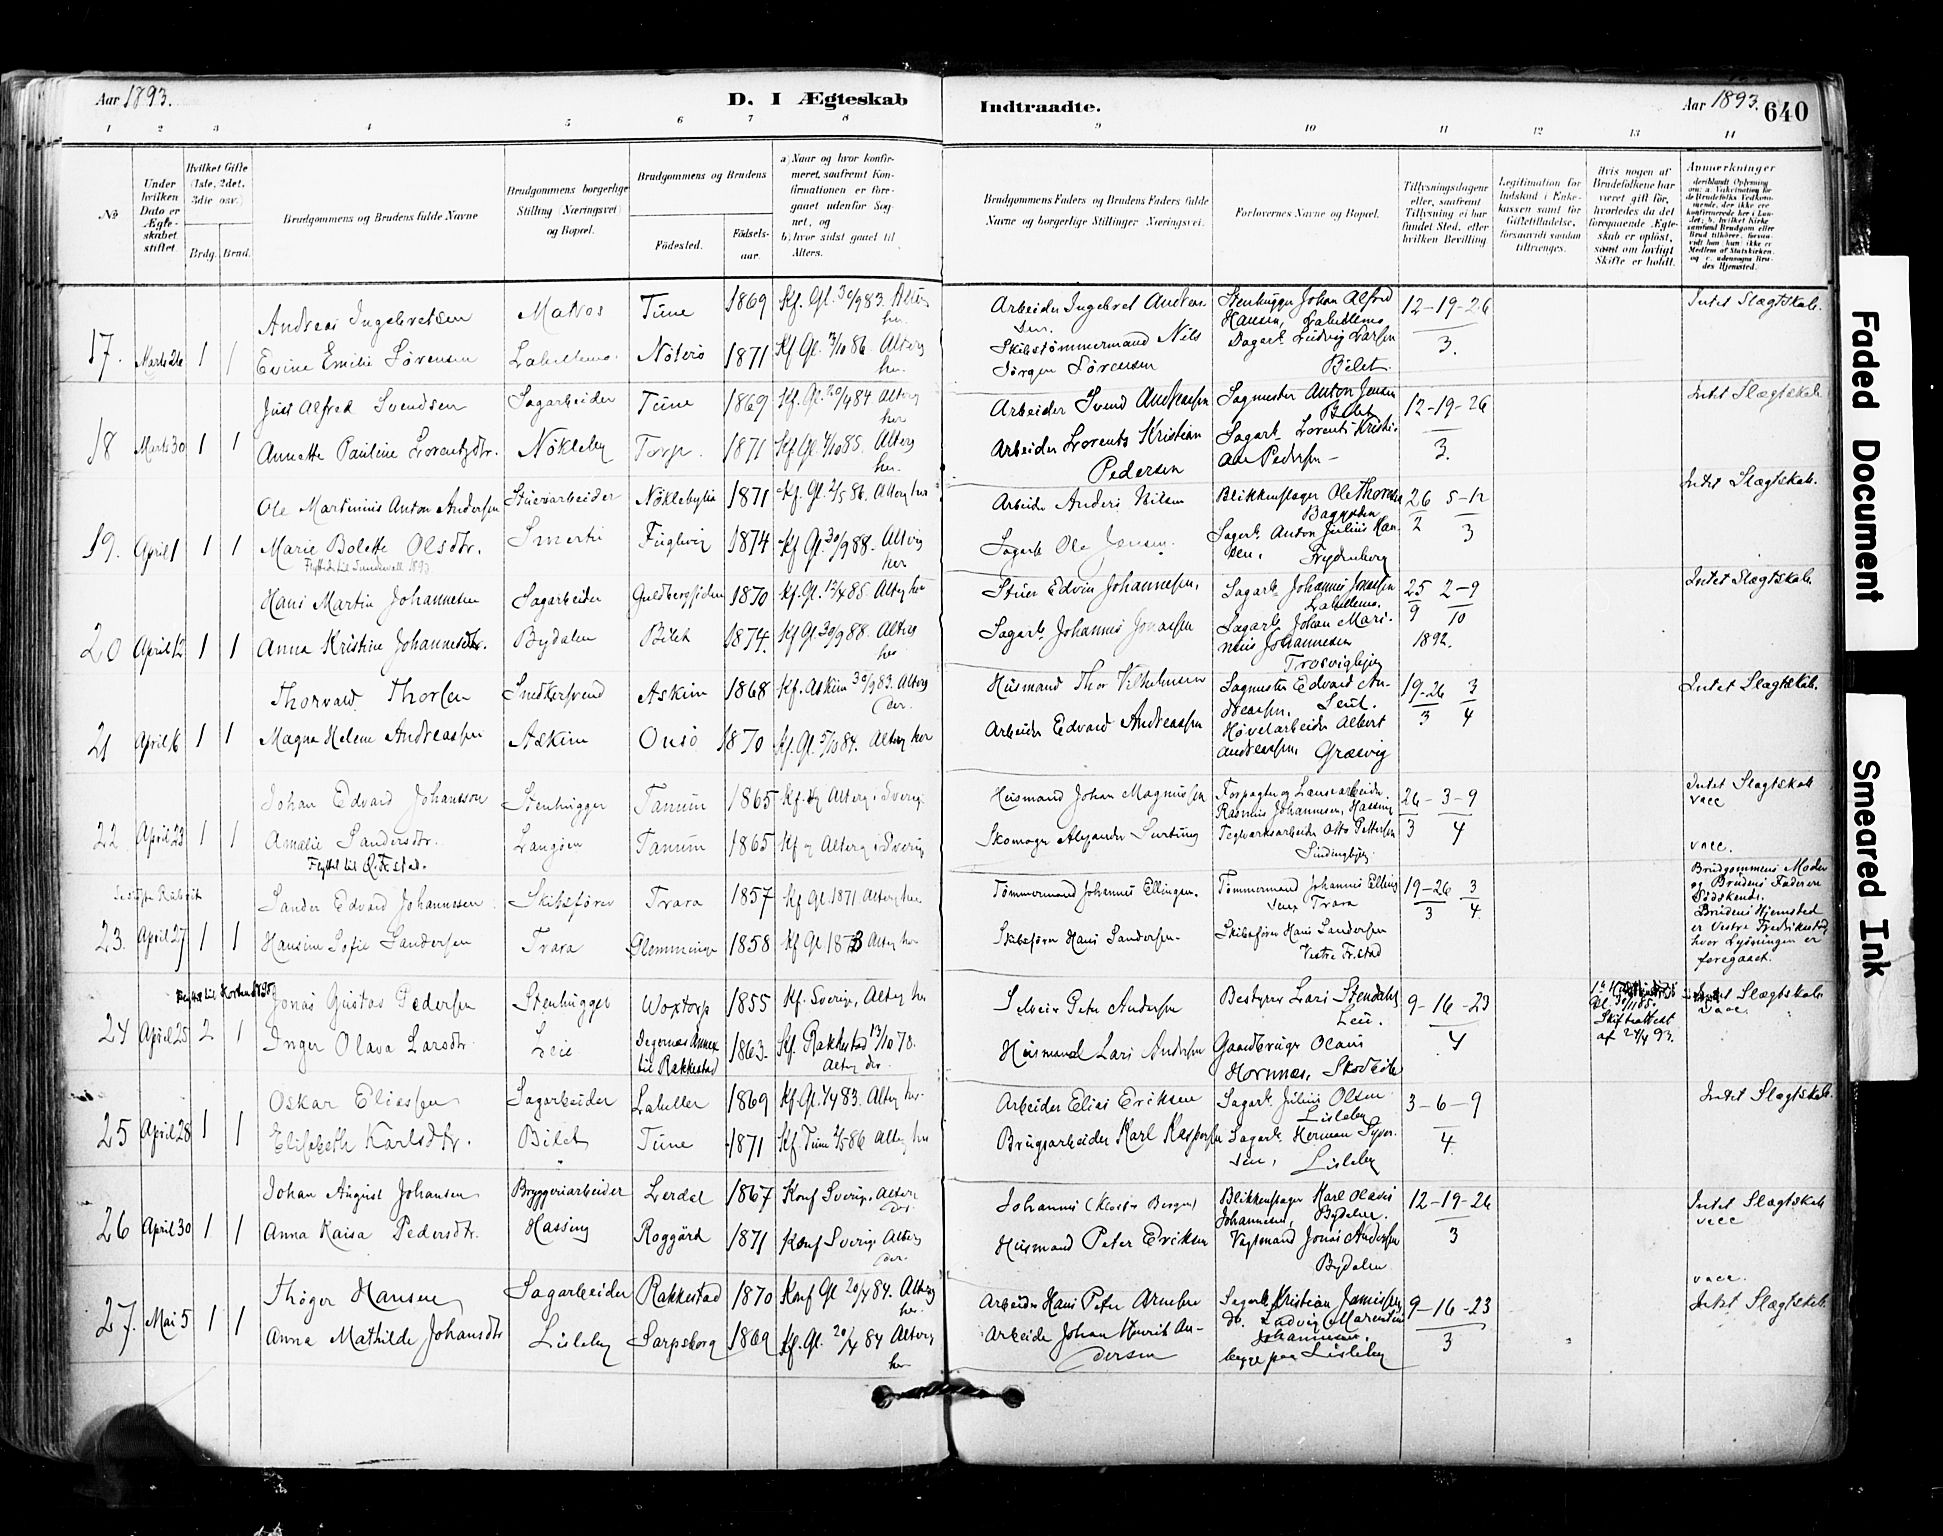 Aar 1893.
D. I Ægteskab
Indtraadte.
Aar 1893.
640
1 2 3 4 5 6 7 8 9 10 11 12 13 14
No
Under hvilken Dato er Ægteskabet stiftet.
Hvilket Gifte (1ste, 2det, 3die osv.)
Brdg. Brud.
Brudgommens og Brudens fulde Navne
Brudgommens borgerlige Stilling (Næringsvei) og Bopæl.
Brudgommens og Brudens
Fødested.
Fødselsaar.
a) Naar og hvor konfirmeret, saafremt Konfirmationen er foregaaet udenfor Sognet, og
b) hvor sidst gaaet til Alters.
Brudgommens Faders og Brudens Faders fulde Navne og borgerlige Stillinger Næringsvei.
Forlovernes Navne og Bopæl.
Tillysningsdagene eller, saafremt Tillysning ei har fundet Sted, efter hvilken Bevilling
Legitimation for Indskud i Enkekassen samt for Giftetilladelse, forsaavidt saadan tiltrænges.
Hvis nogen af Brudefolkene har været gift før, hvorledes da det foregaaende Ægteskab er opløst, samt om lovligt Skifte er holdt.
Anmærkninger
17. Marts 26 1 1
Andreas Ingebretsen Matros Tune 1869 Kf. Gl. 30/9 83. Alterg her.
Evine Emilie Sørensen Labellemo. Nøterø 1871 Kf Gl. 3/10 86. Alterg her.
Arbeider Ingebret Andersen.
Skibstømmermand Nils Jørgen Sørensen
Stenhugger Johan Alfred Hansen, Labellemo
Dagarb. Ludvig Larsen Bilet.
12-19-26 3.
Intet Slægtskab.
18 Marts 30 1 1
Just Alfred Svendsen Sagarbeider Tune 1869 Kf. Gl. 20/4 84 Alterg her
Annette Pauline Lorentzdtr. Nøkleby Torp. 1871 Kf Gl. 4/10 85. Alterg her.
Arbeider Svend Andreasen
Arbeider Lorents Kristian Pedersen
Sagmester Anton Jensen Bilet
Sagarb. Lorents Kristian Pedersen
12-19-26 3.
Intet Slægtskab
19. April 1 1 1
Ole Martinius Anton Andersen Stuerarbeider Nøkleby 1871 Kf. Gl. 2/5 86. Alterg her
Marie Bolette Olsdtr. Smertu Fuglevig 1874 Kf Gl. 30/9 88. Alterg her
Flyttede til Sundsvall 1893
Arbeider Anders Nilsen
Sagarb Ole Jensen.
Blikkenslager Ole Thorvaldsen
Sagarb. Anton Julius Hansen. Frydenberg
26 5-12 2 3
Intet Slægtskab.
20 April 12 1 1
Hans Martin Johannesen Sagarbeider Guldbergsiden 1870 Kf. Gl. 12/4 85. Alterg her
Anna Kristine Johannesdtr. Bydalen Bilet 1874. Kf Gl. 30/9 88. Alterg her
Stuer Edvin Johannesen.
Sagarb. Johannes Jonassen
Sagarb Johannes Jonassen Labellemo.
Sagarb Johan Marinius Johannesen Trosvigbjerg
25 2-9 9 10 1892.
Intet Slægtskab
21 April 16 1 1
Thorvald Thorsen Snedkersvend Askim 1868 Kf. Askim 30/9 83. Alterg der.
Magna Helene Andreassen Askim Onsø 1870 Kf. Gl. 5/10 84. Alterg her
Husmand Thor Vilhelmsen
Arbeider Edvard Andreassen
Sagmester Edvard Andreassen. Leie.
Høvelarbeider Albert Andreassen, Græsvig
19-26 3 3 4
Intet Slægtskab.
22 April 23 1 1
Johan Edvard Johansson Stenhugger Tanum 1865 Kf. og Alterg i Sverig
Amalie Sandersdtr. Langøen Tanum 1865 Kf og Alterg i Sverig
Flyttet til Ø. F.stad.
Husmand Johan Magnussen
Skomager Alexander
Forpagter og Landarbeider Rasmus Johannesen, Hassing
Teglværksarbeider Otto Pettersen
26-3-9 3 4
Intet Slægtskab vacc
vacc.
23. April 27 1 1
Sander Edvard Johannesen Skibsfører Trara 1857 Kf Gl. 1871 Alterg her
Hansine Sofie Sandersen Trara Glemminge 1858 Kf Gl 1873 Alterg her
Tømmermand Johannes Ellingsen.
Skibsfører Hans Sandersen.
Tømmermand Johannes Ellingsen Trara
Skibsfører Hans Sandersen Vestre Fr.stad
19-26 3 3 4
Brudgommens Moder og Brudens Fader ere Sødskende. Brudens Hjemsted er Vestre Fredrikstad hvor Lysningen er foregaaet.
24 April 25 2 1
Jonas Gustav Pedersen Stenhugger Woxtorp 1855 Kf. Sverige, Alterg her
Inger Olava Larsdtr. Leie Degernæs Annex til Rakkestad 1863. Kf. Rakkestad 13/10 78. Alterg der.
Selveier Peter Andersen
Husmand Lars Andersen
Bestyrer Lars Stendahl Leie.
Gaardbruger Olaus Hornnæs, Skovedt
9-16-23 4
Skifteattest af 24/4 93.
Intet Slægtskab vacc.
25 April 28 1 1
Oskar Eliassen Sagarbeider Labellen 1869 Kf. Gl. 1/4 83. Alterg her.
Elisabeth Karlsdtr. Bilet Tune 1871 Kf. Tune 2/5 86 Alterg her
Arbeider Elias Eriksen
Brugsarbeider Karl Kaspersen
Sagarb. Julius Olsen Lisleby
Sagarb. Herman Syversen, Lisleby
3-6-9 4.
Intet Slægtskab.
26 April 30 1 1
Johan August Johansen Bryggeriarbeider Lerdal 1867 Konf Sverige, Alterg der.
Anna Kaisa Pedersdtr. Hassing Roggärd 1871 Konf Sverige Alterg der.
Johannes
Husmand Peter Eriksen
Blikkenslager Karl Olaves Johannesen, Bydalen.
Vagtmand Jonas Andersen Bydalen
12-19-26 3
Intet Slægtskab vacc
27. Mai 5 1 1
Thøger Hansen Sagarbeider Rakkestad 1870 Konf Gl 20/4 84. Alterg her.
Anna Mathilde Johansdtr Lisleby Sarpsborg 1869 Kf. Gl. 20/4 84 Alterg her
Arbeider Hans Peter Arnesen
Arbeider Johan Henrik Andersen
Sagarb. Kristian Jamissen
do. Ludvig Marentius Johannesen.
begge paa Lisleby
9-16-23 3
vacc.
Intet Slægtskab.
Faded Document
Smeared Ink